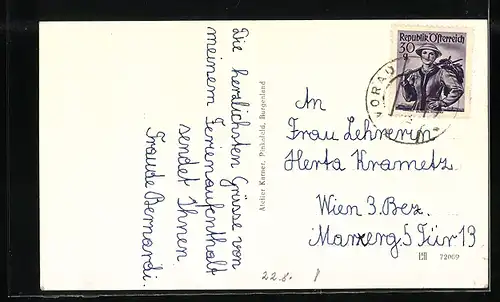 Die herzlichsten Grüsse von
meinem Ferienaufenthalt
sendet Ihnen
Traude Bernardi.
Atelier Karner, Pinkafeld, Burgenland
Republik Österreich
30
g
VORAU
An
Frau Lehrerin
Herta Krametz
Wien 3. Bez.
Marxerg. 5 Tür 13
22.8.
72009